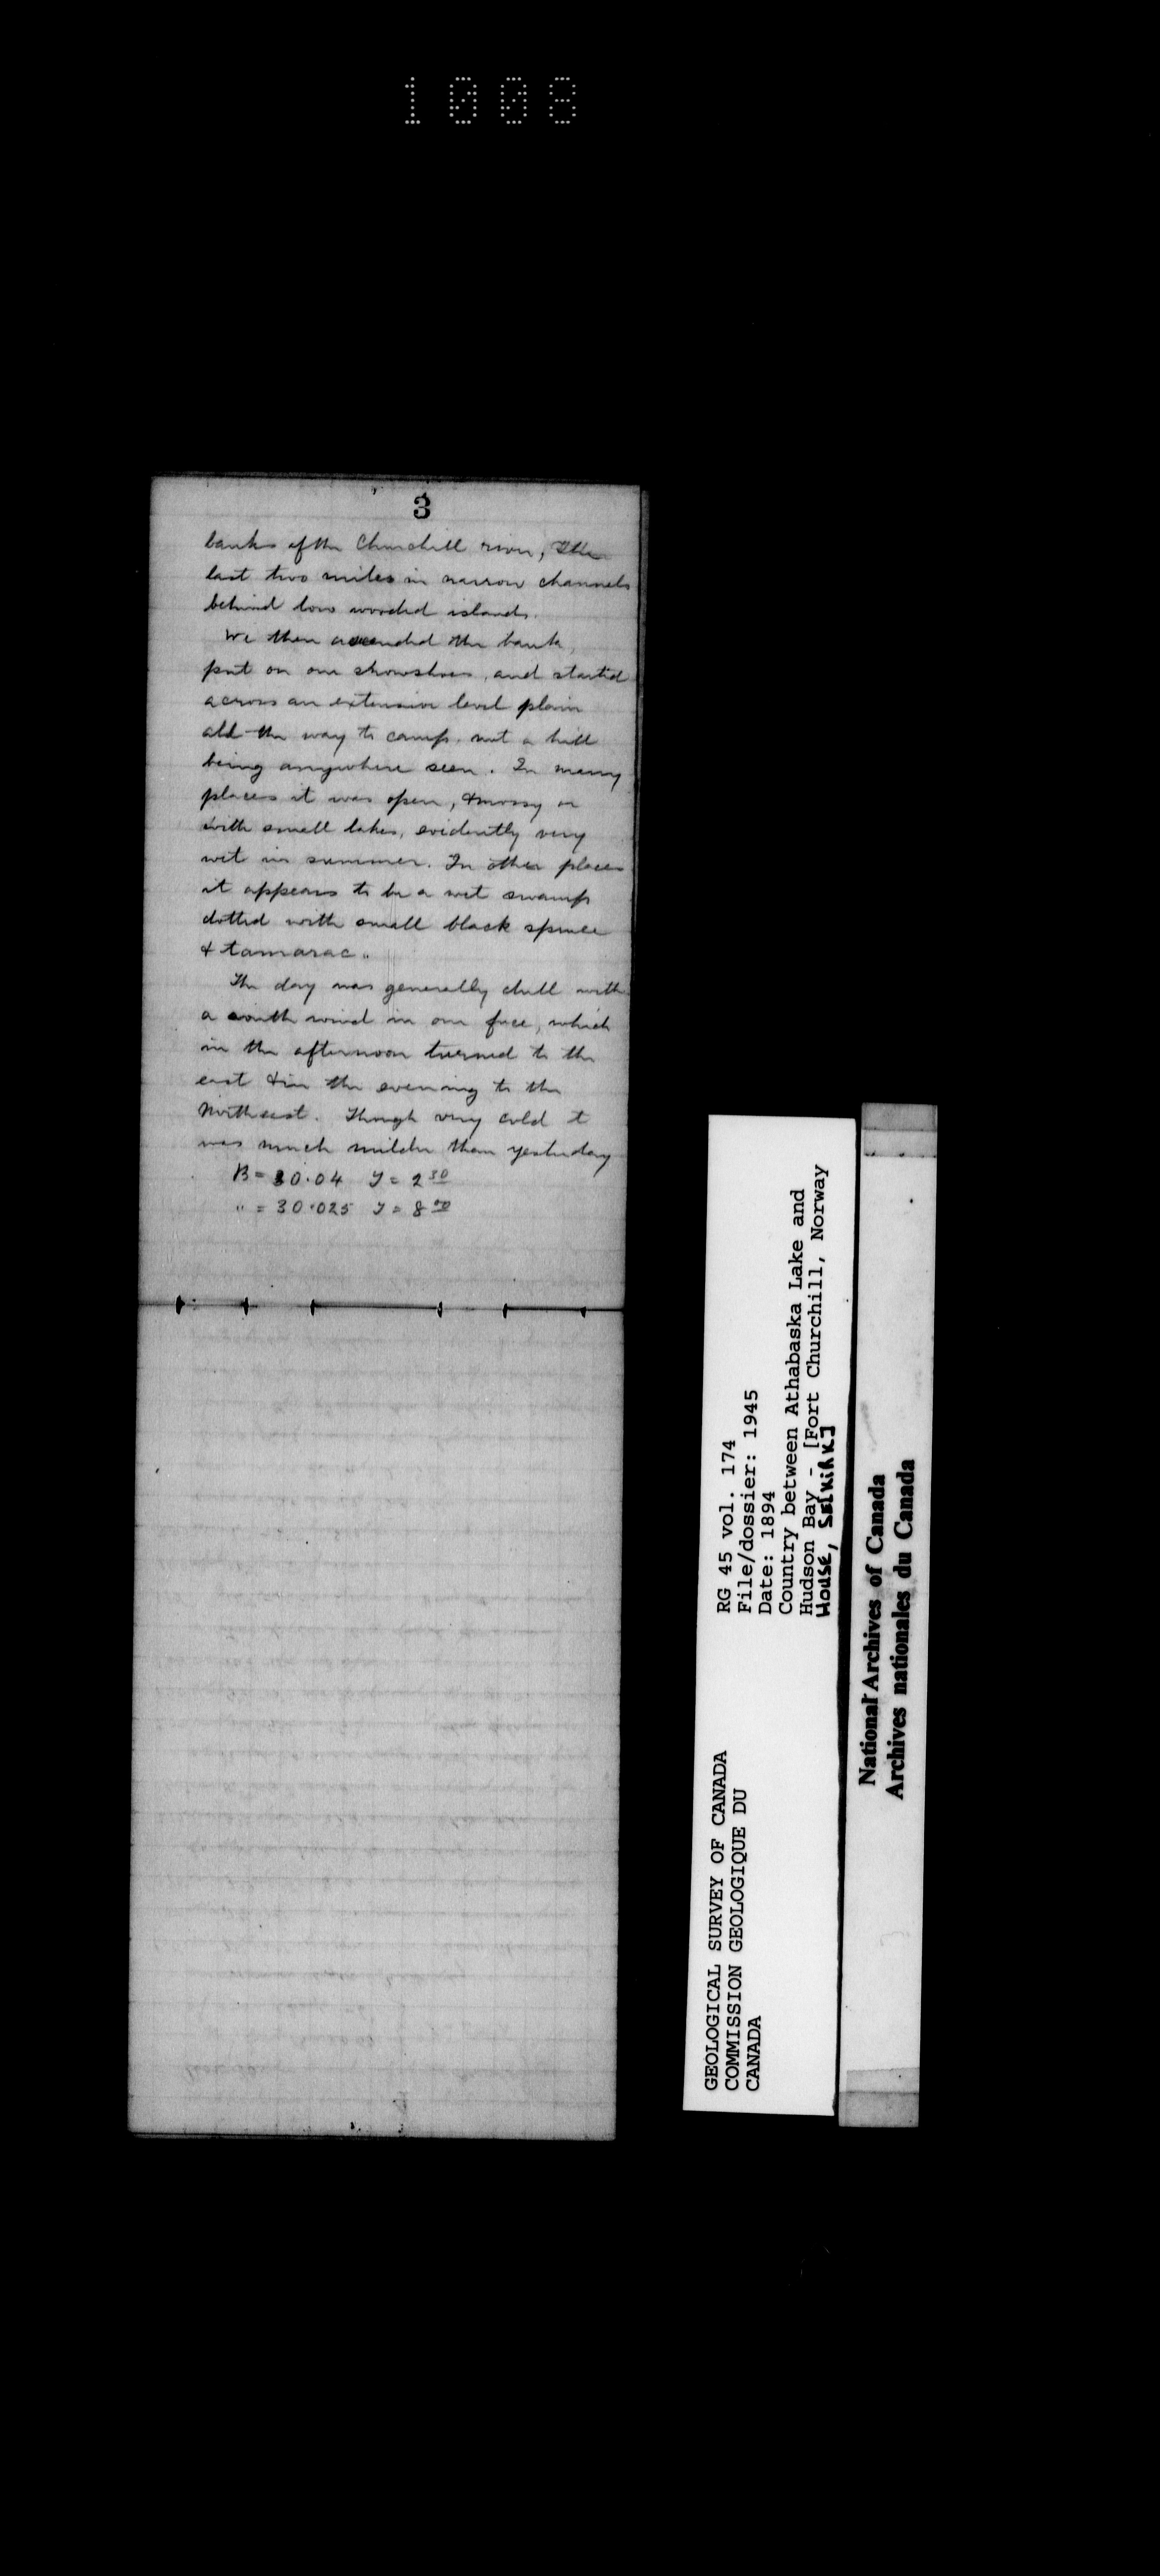 1008
3
banks of the Churchill river, & the
last two miles in narrow channels
behind low wooded islands.
We then ascended the bank,
put on our snowshoes, and started
across an extensive level plain
all the way to camp, not a hill
being anywhere seen. In many
places it was open, & mossy or
with small lakes, evidently very
wet in summer. In other places
it appears to be a wet swamp
dotted with small black spruce
& tamarac.
The day was generally dull with
a south wind in our face, which
in the afternoon turned to the
east & in the evening to the
Northeast. Though very cold it
was much milder than yesterday
B = 30.04 T = 2 30
" = 30.025 T = 8 00
GEOLOGICAL SURVEY OF CANADA
COMMISSION GEOLOGIQUE DU
CANADA
RG 45 vol. 174
File/dossier: 1945
Date: 1894
Country between Athabaska Lake and
Hudson Bay - [Fort Churchill, Norway
House, SELKIRK]
National Archives of Canada
Archives nationales du Canada